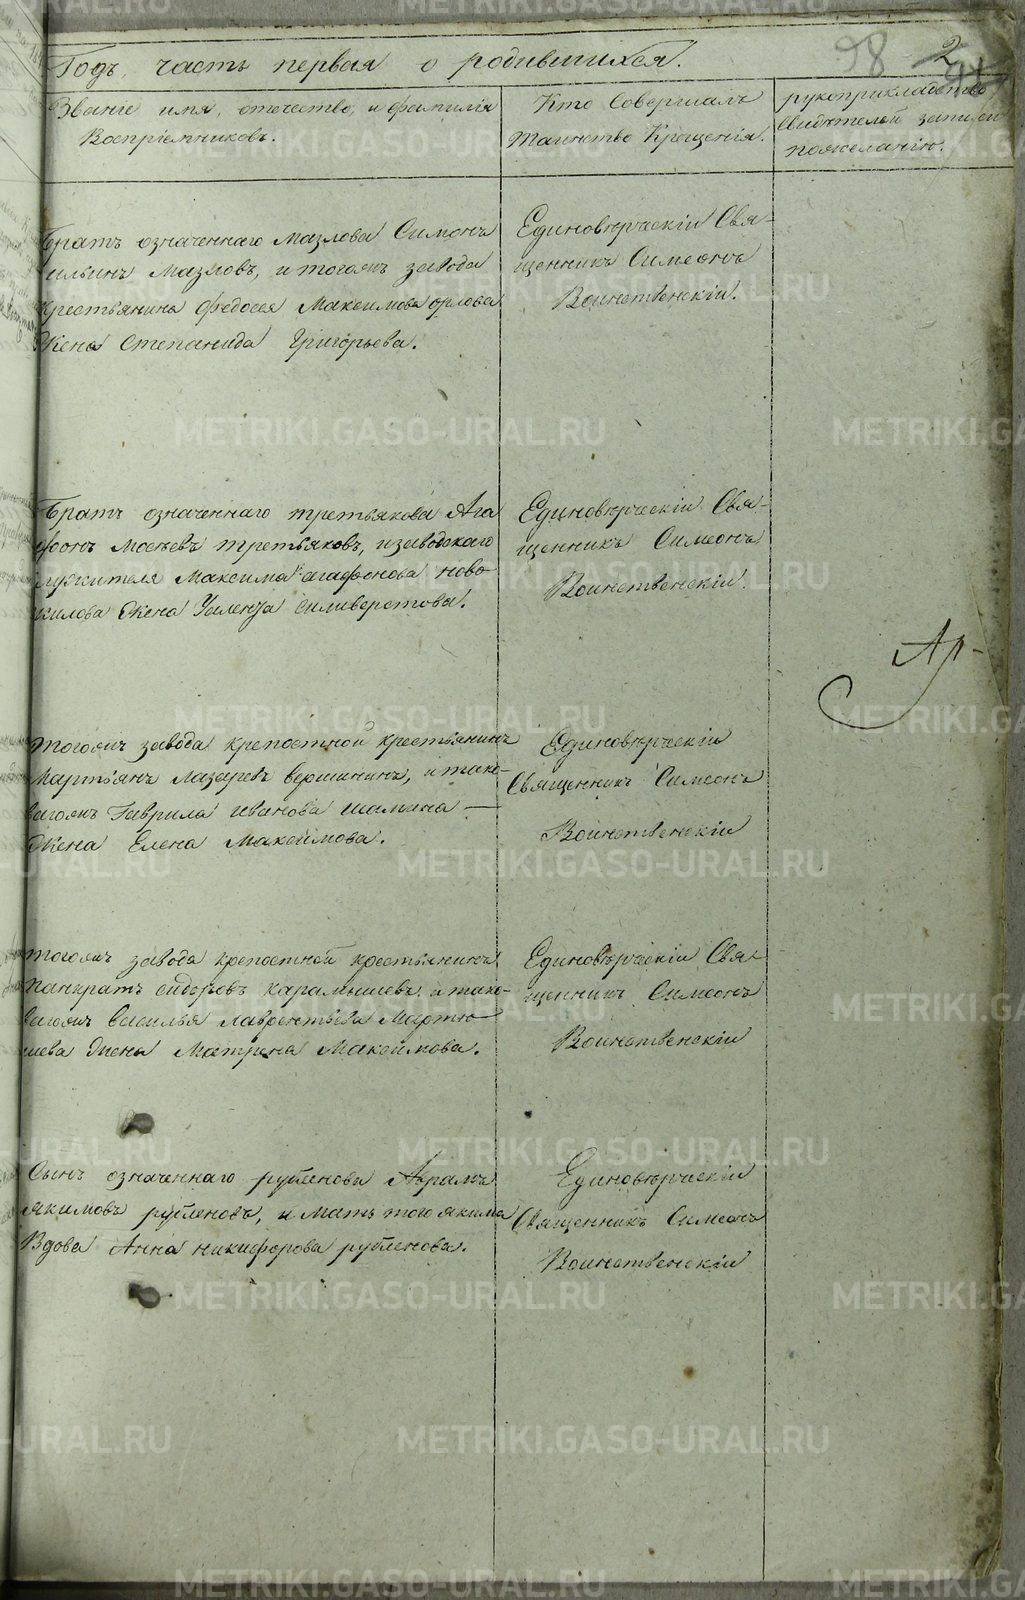 98 2
Годъ, часть первая о родившихся.
Званіе имя, отечество, и фамилія
Воспріемниковъ.
Кто Совершалъ
таинство Крещенія.
рукоприкладство
свидѣтелей записи
пожеланію.
Братъ означеннаго Мазлова Симонъ
ильинъ Мазловъ, и тогожъ завода
крестьянина Федосея Максимова орлова
Жена Степанида Григорьева.
Единовѣрческій Свя-
щенникъ Симеонъ
Воинственскій.
Братъ означеннаго третьякова Ага
фонъ Мосѣевъ третьяковъ, изаводскаго
служителя Максима агафонова ново-
жилова Жена силиверстова.
Единовѣрческій Свя-
щенникъ Симеонъ
Воинственскій.
Ар-
тогожъ завода крепостной крестьянинъ
Мартьянъ Лазаревъ вершининъ, и тако-
вагожъ Гаврила иванова шамина —
Жена Елена Максимова.
Единовѣрческій
Священникъ Симеонъ
Воинственскій
тогожъ завода крепостной крестьянинъ
Панкратъ сидоровъ карамышевъ, и тако-
вагожъ василья лаврентьева Мартю-
шева Жена Матрена Максимова.
Единовѣрческій Свя-
щенникъ Симеонъ
Воинственскій
Сынъ означеннаго рубленова Абрамъ
якимовъ рубленовъ, и мать того якима
Вдова Анна никифорова рубленова.
Единовѣрческій
Священникъ Симеонъ
Воинственскій
METRIKI.GASO-URAL.RU